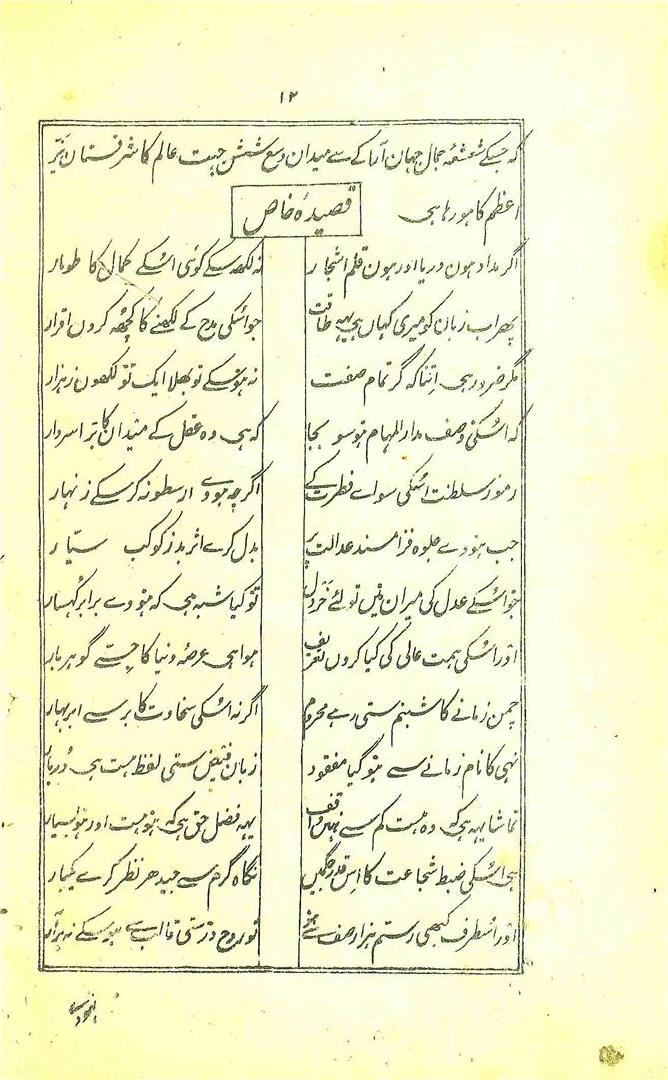 ۱۲
کہ جسکے شعشعہ جمال جہان آرا کے سے میدان وسیع شش جہت عالم کا شرفستان نیّر
اعظم کا ہو رہا ہی
قصیدہ خاص
اگر مداد ہون دریا اور ہون قلم اشجار نہ لکھ سکے کوئی اُسکے کمال کا طومار
پھر اب زبان کو میری کہاں ہی یہہ طاقت جو اُسکی مدح کے لکھنے کا کچھہ کروں اقرار
مگر ضرور ہی اِتنا کہ گر تمام صفت نہ ہو سکے تو بھلا ایک تو لکھون ز ہزار
کہ اُسکی وصف مدار المہام ہو سو بجا کہ ہی وہ عقل کے میدان کا بڑا سردار
رموز سلطنت اُسکی سواے فطرت کے اگرچہ ہووے ارسطو نہ کر سکے زنہار
جب ہووے جلوہ فزا مسند عدالت پر بدل کرے اثر بد ز کوکب سیّار
جو اُسکے عدل کی میزان میں تولئے خردل تو کیا شبہ ہی کہ ہووے برابر کُہسار
اور اُسکی ہمت عالی کی کیا کروں تعریف ہوا ہی عرصہ دنیا کا جسّے گوہربار
چمن زمانے کا شبنم ستی رہے محروم اگر نہ اُسکی سخاوت کا برسے ابر بہار
نہی کا نام زمانے سے ہو گیا مفقود زبان فیض ستی لفظ ہست ہی دُربار
تماشا یہہ ہی کہ وہ ہست کم سے نہیں واقف یہہ فضل حق ہی کہ ہو ہست اور ہو بسیار
ہی اُسکی ضبط شجاعت کا اِس قدر جگمیں نگاہ گرم سے جیدھر نظر کرے یکبار
اور اُسطرف کبھی رستم ہزار صف تو روح ڈر ستی قالب سے ہو سکے نہ برآر